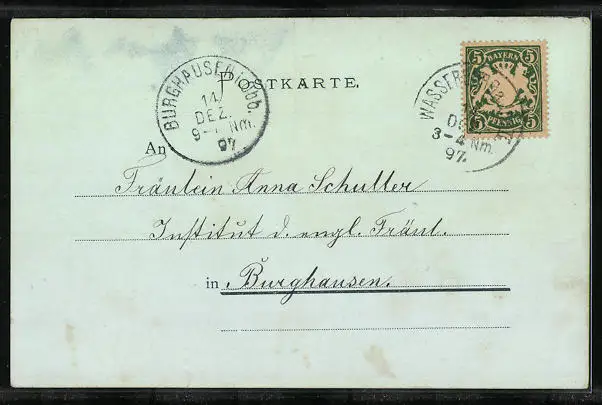 POSTKARTE.
BURGHAUSEN i. Obb.
14
DEZ.
9-1 Nm.
97.
5 BAYERN 5
5 PFENNIG 5
WASSERBURG
DEZ
3-4 Nm.
97.
An
Fräulein Anna Schuller
Institut d. engl. Fräul.
in Burghausen.